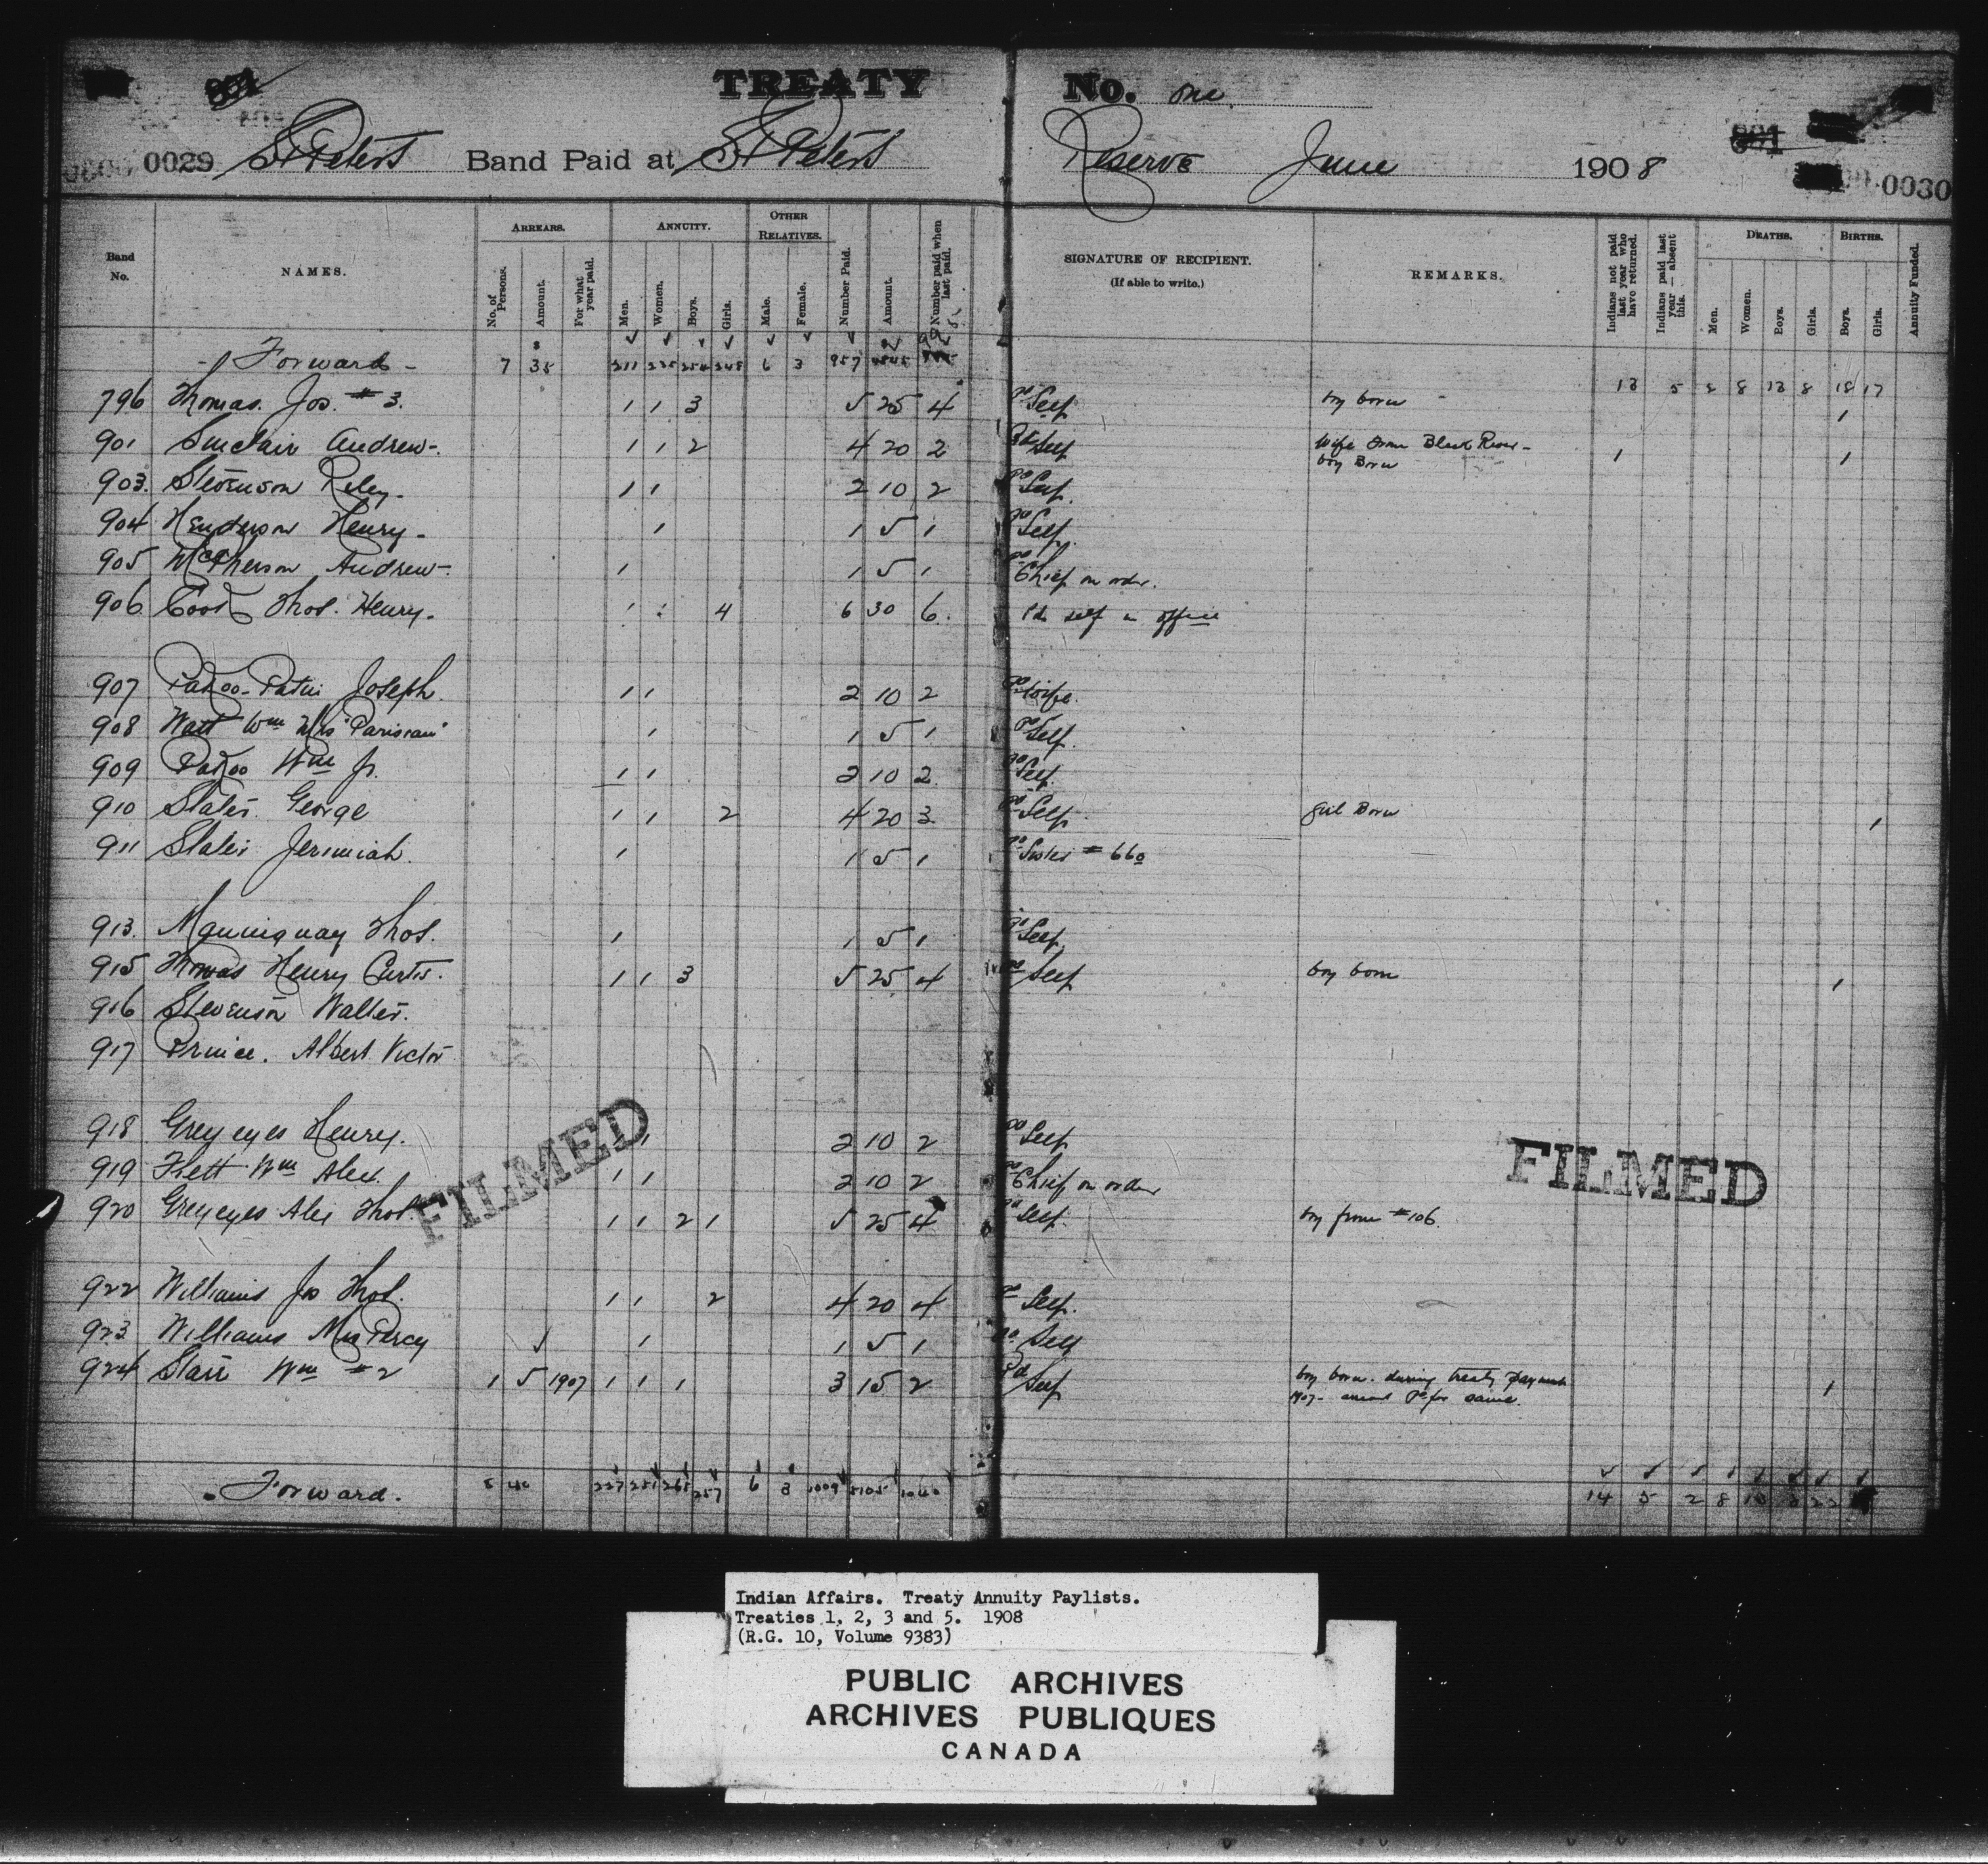 TREATY No. One
0029 St Peters Band Paid at St Peters Reserve June 1908 0030
Band No. NAMES. ARREARS. No. of Persons. Amount. For what year paid. ANNUITY. Men. Women. Boys. Girls. OTHER RELATIVES. Male. Female. Number Paid. Amount. Number paid when last paid. SIGNATURE OF RECIPIENT. (If able to write.) REMARKS. Indians not paid last year who have returned. Indians paid last year—absent this. DEATHS. Men. Women. Boys. Girls. BIRTHS. Boys. Girls. Annuity Funded.
- Forward - 7 35 211 235 254 248 6 3 957 13 5 2 8 13 8 18 17
796 Thomas Jos. #3. 1 1 3 5 25 4 Pd Self boy born 1
901 Sinclair Andrew 1 1 2 4 20 2 Pd Self Wife from Black River - 1
boy Born 1
903 Stevenson Riley 1 1 2 10 2 Pd Self
904 Henderson Henry 1 1 5 1 Pd Self
905 McPherson Andrew 1 1 5 1 Pd Chief on order.
906 Cook Thos. Henry 1 1 4 6 30 6 Pd self in office
907 Pakoo-Patui Joseph 1 1 2 10 2 Pd Wife
908 Watt Wm Mrs "Parisian" 1 1 5 1 Pd Self
909 Pakoo Wm Jr. 1 1 2 10 2 Pd Self
910 Slater George 1 1 2 4 20 3 Pd Self Girl Born 1
911 Slater Jeremiah 1 1 5 1 Pd Sister #660
913 Maniquay Thos. 1 1 5 1 Pd Self
915 Thomas Henry Curtis 1 1 3 5 25 4 Pd Self boy born 1
916 Stevenson Walter.
917 Prince. Albert Victor
918 Greyeyes Henry. 1 1 2 10 2 Pd Self
919 Flett Wm Alex. 1 1 2 10 2 Pd Chief on order
920 Greyeyes Alex Thos. 1 1 2 1 5 25 4 Pd Self boy from #106.
FILMED
FILMED
922 Williams Jos Thos. 1 1 2 4 20 4 Pd Self.
923 Williams Mrs Percy 1 1 5 1 Pd Self
924 Starr Wm #2 1 5 1907 1 1 1 3 15 2 Pd Self boy born during treaty payments 1
1907 - Pd for same.
Forward. 8 40 227 251 265 257 6 3 1009 5105 1040 14 5 2 8 13 8 22
Indian Affairs. Treaty Annuity Paylists.
Treaties 1, 2, 3 and 5. 1908
(R.G. 10, Volume 9383)
PUBLIC ARCHIVES
ARCHIVES PUBLIQUES
CANADA